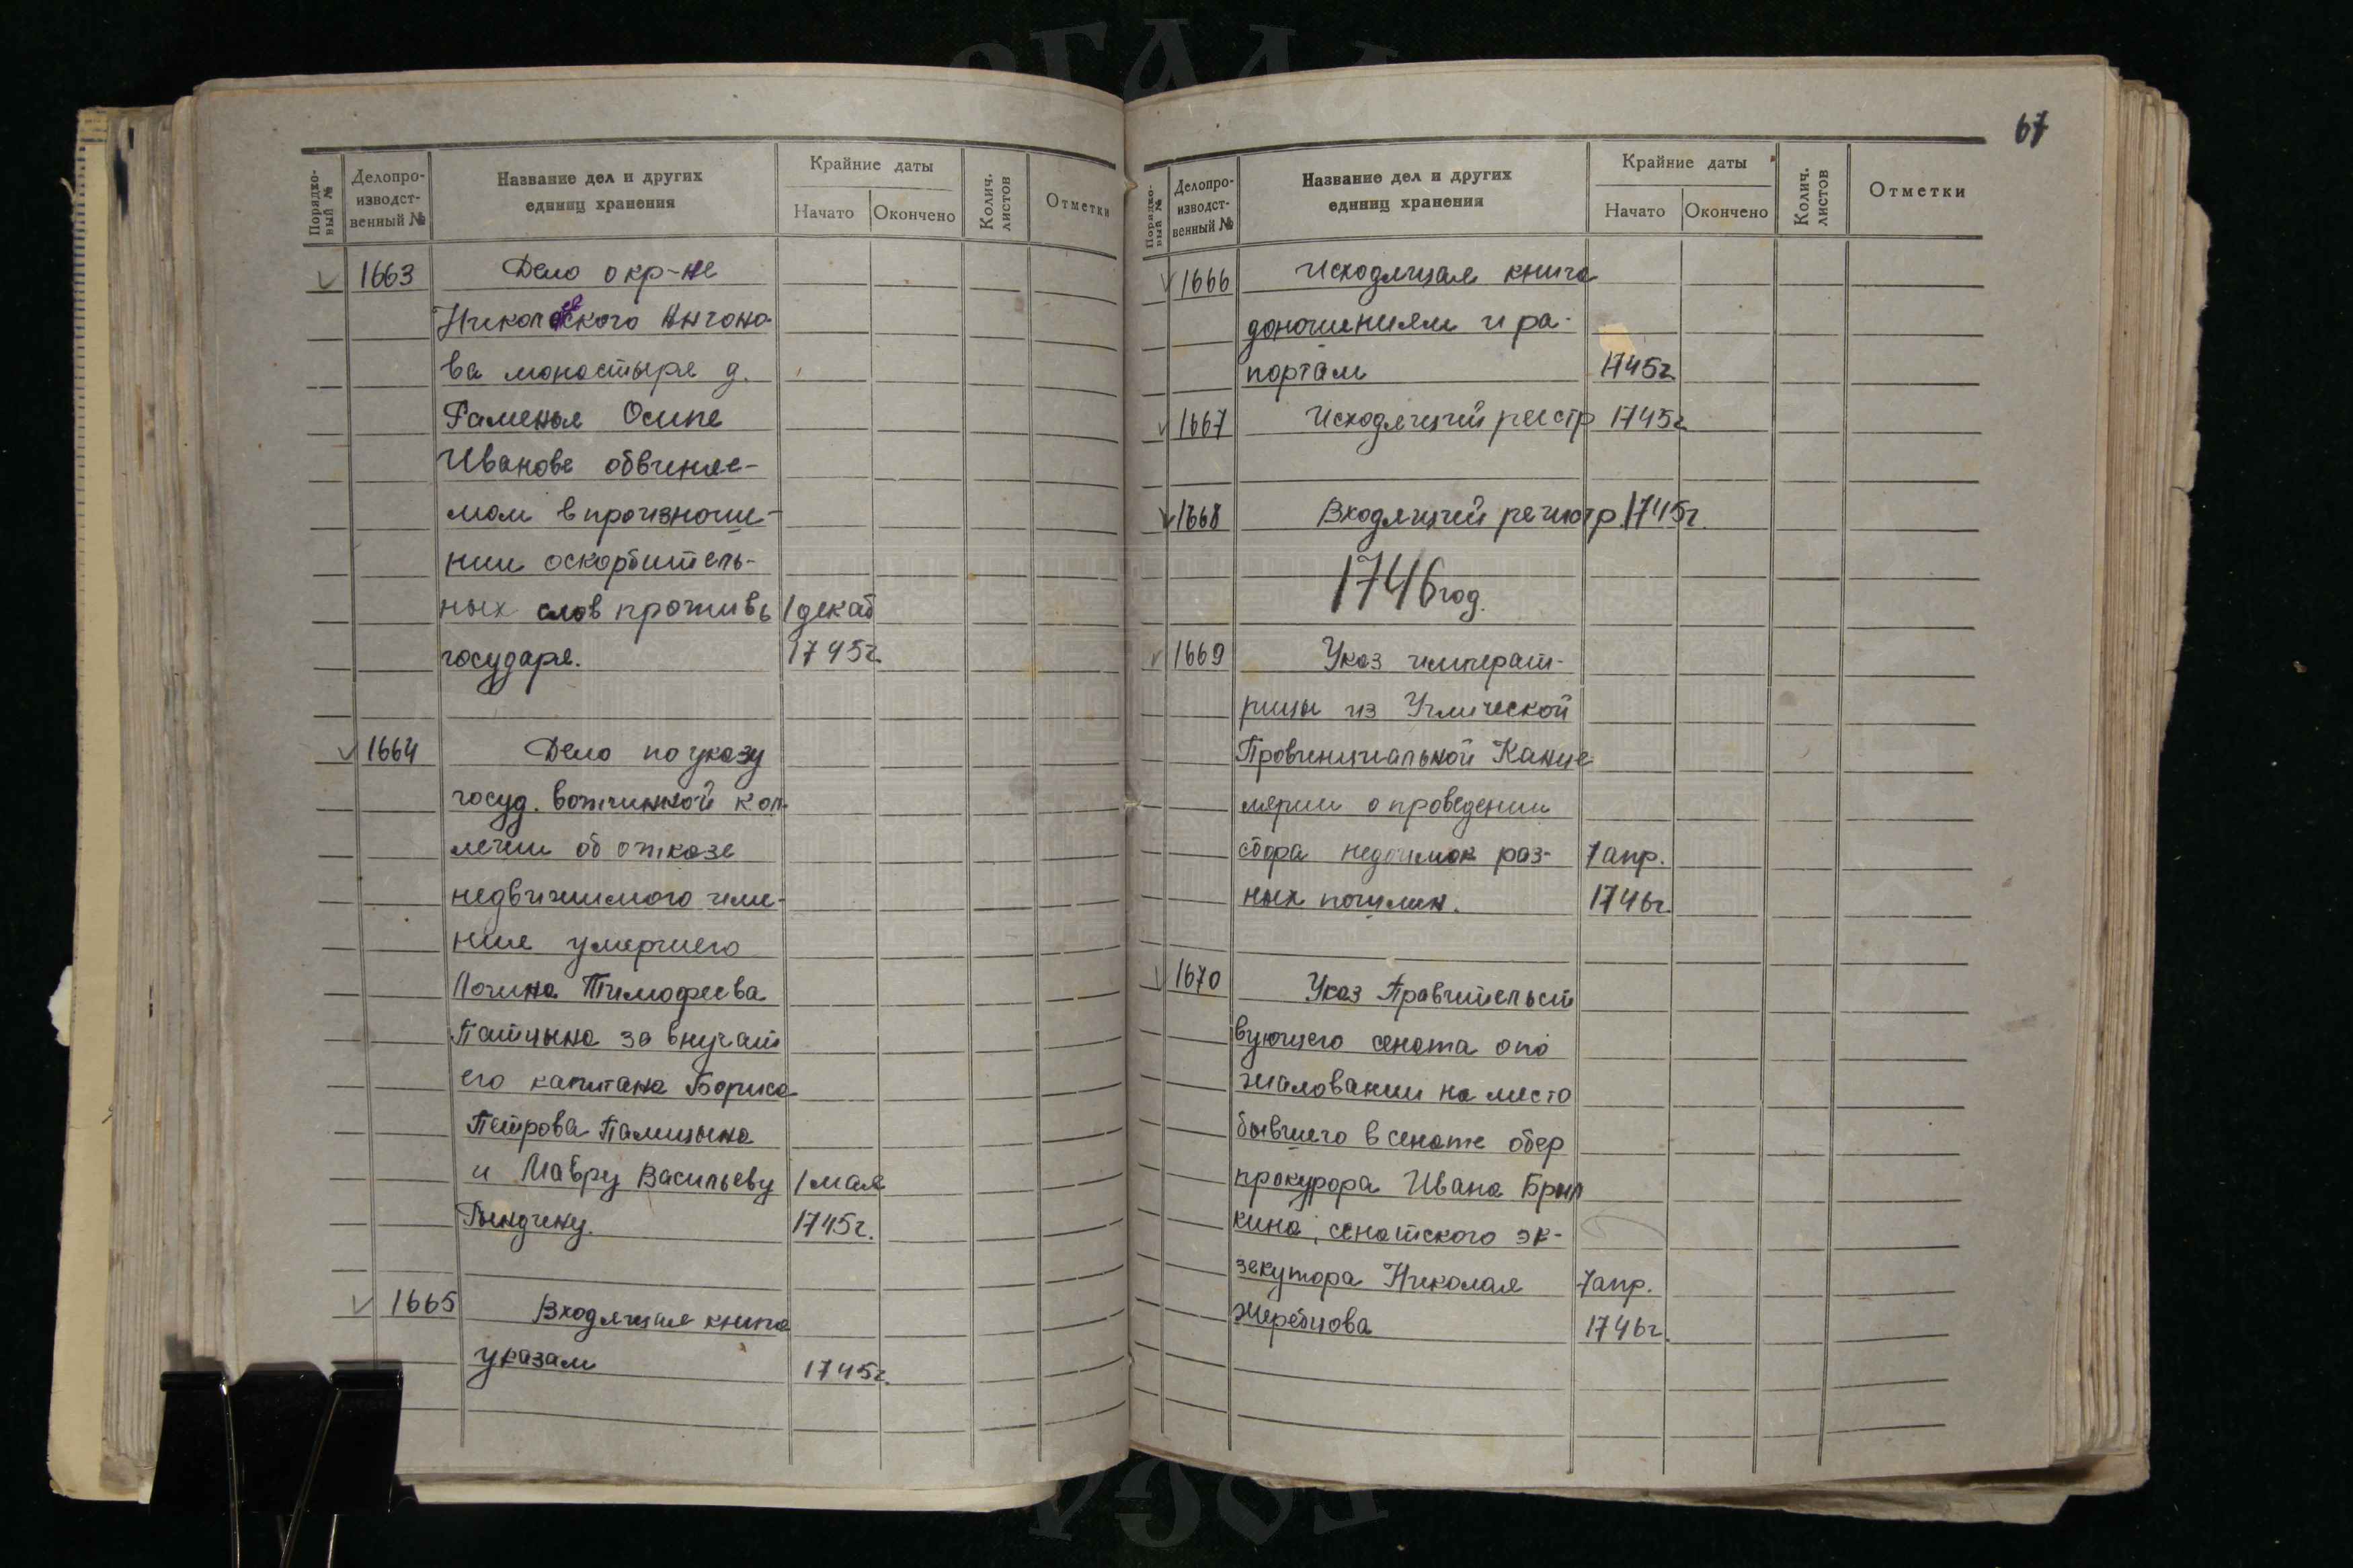 67
Порядко-
вый №
Делопро-
изводст-
венный №
Название дел и других
единиц хранения
Крайние даты
Начато
Окончено
Колич.
листов
Отметки
1663 Дело о кр-не
Никольского Антоно-
ва монастыря д.
Раменья Осипе
Иванове обвиняе-
мом в произноше-
нии оскорбитель-
ных слов противь 1 декаб
государя. 1745г.
1664 Дело по указу
госуд. вотчинной кол-
легии об отказе
недвижимого име-
ния умершего
Логина Тимофеева
Палицына за внучат
его капитана Бориса
Петрова Палицына
и Мавру Васильеву 1 мая
1745г.
1665 Входящая книга
указам 1745г.
Порядко-
вый №
Делопро-
изводст-
венный №
Название дел и других
единиц хранения
Крайние даты
Начато
Окончено
Колич.
листов
Отметки
1666 Исходящая книга
доношениям и ра-
портам 1745г
1667 Исходящий реестр 1745г
1668 Входящий регистр 1745г.
1746 год.
1669 Указ императ-
рицы из Углической
Провинциальной Канце
лярии о проведении
сбора недоимок раз- 7 апр.
ных пошлин. 1746г.
1670 Указ Правительст
вующего сената о по
жаловании на место
бывшего в сенате обер
прокурора Ивана Брыл
кина, сенатского эк-
зекутора Николая 7 апр.
Жеребцова 1746г.